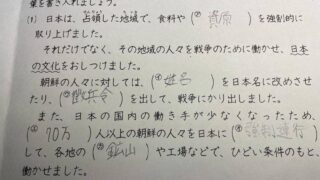 葉を書き入れましょう。
(1) 日本は、占領した地域で、食料や(② 資原 )を強制的に
取り上げました。
それだけでなく、その地域の人々を戦争のために働かせ、日本
の文化をおしつけました。
朝鮮の人々に対しては、(③ 姓名 )を日本名に改めさせ
たり、(④ 徴兵令 )を出して、戦争にかり出しました。
また、日本の国内の働き手が少なくなったため、
( 70万 )人以上の朝鮮の人々を日本に( 強制連行 )
して、各地の( 鉱山 )や工場などで、ひどい条件のもと、
働かせました。